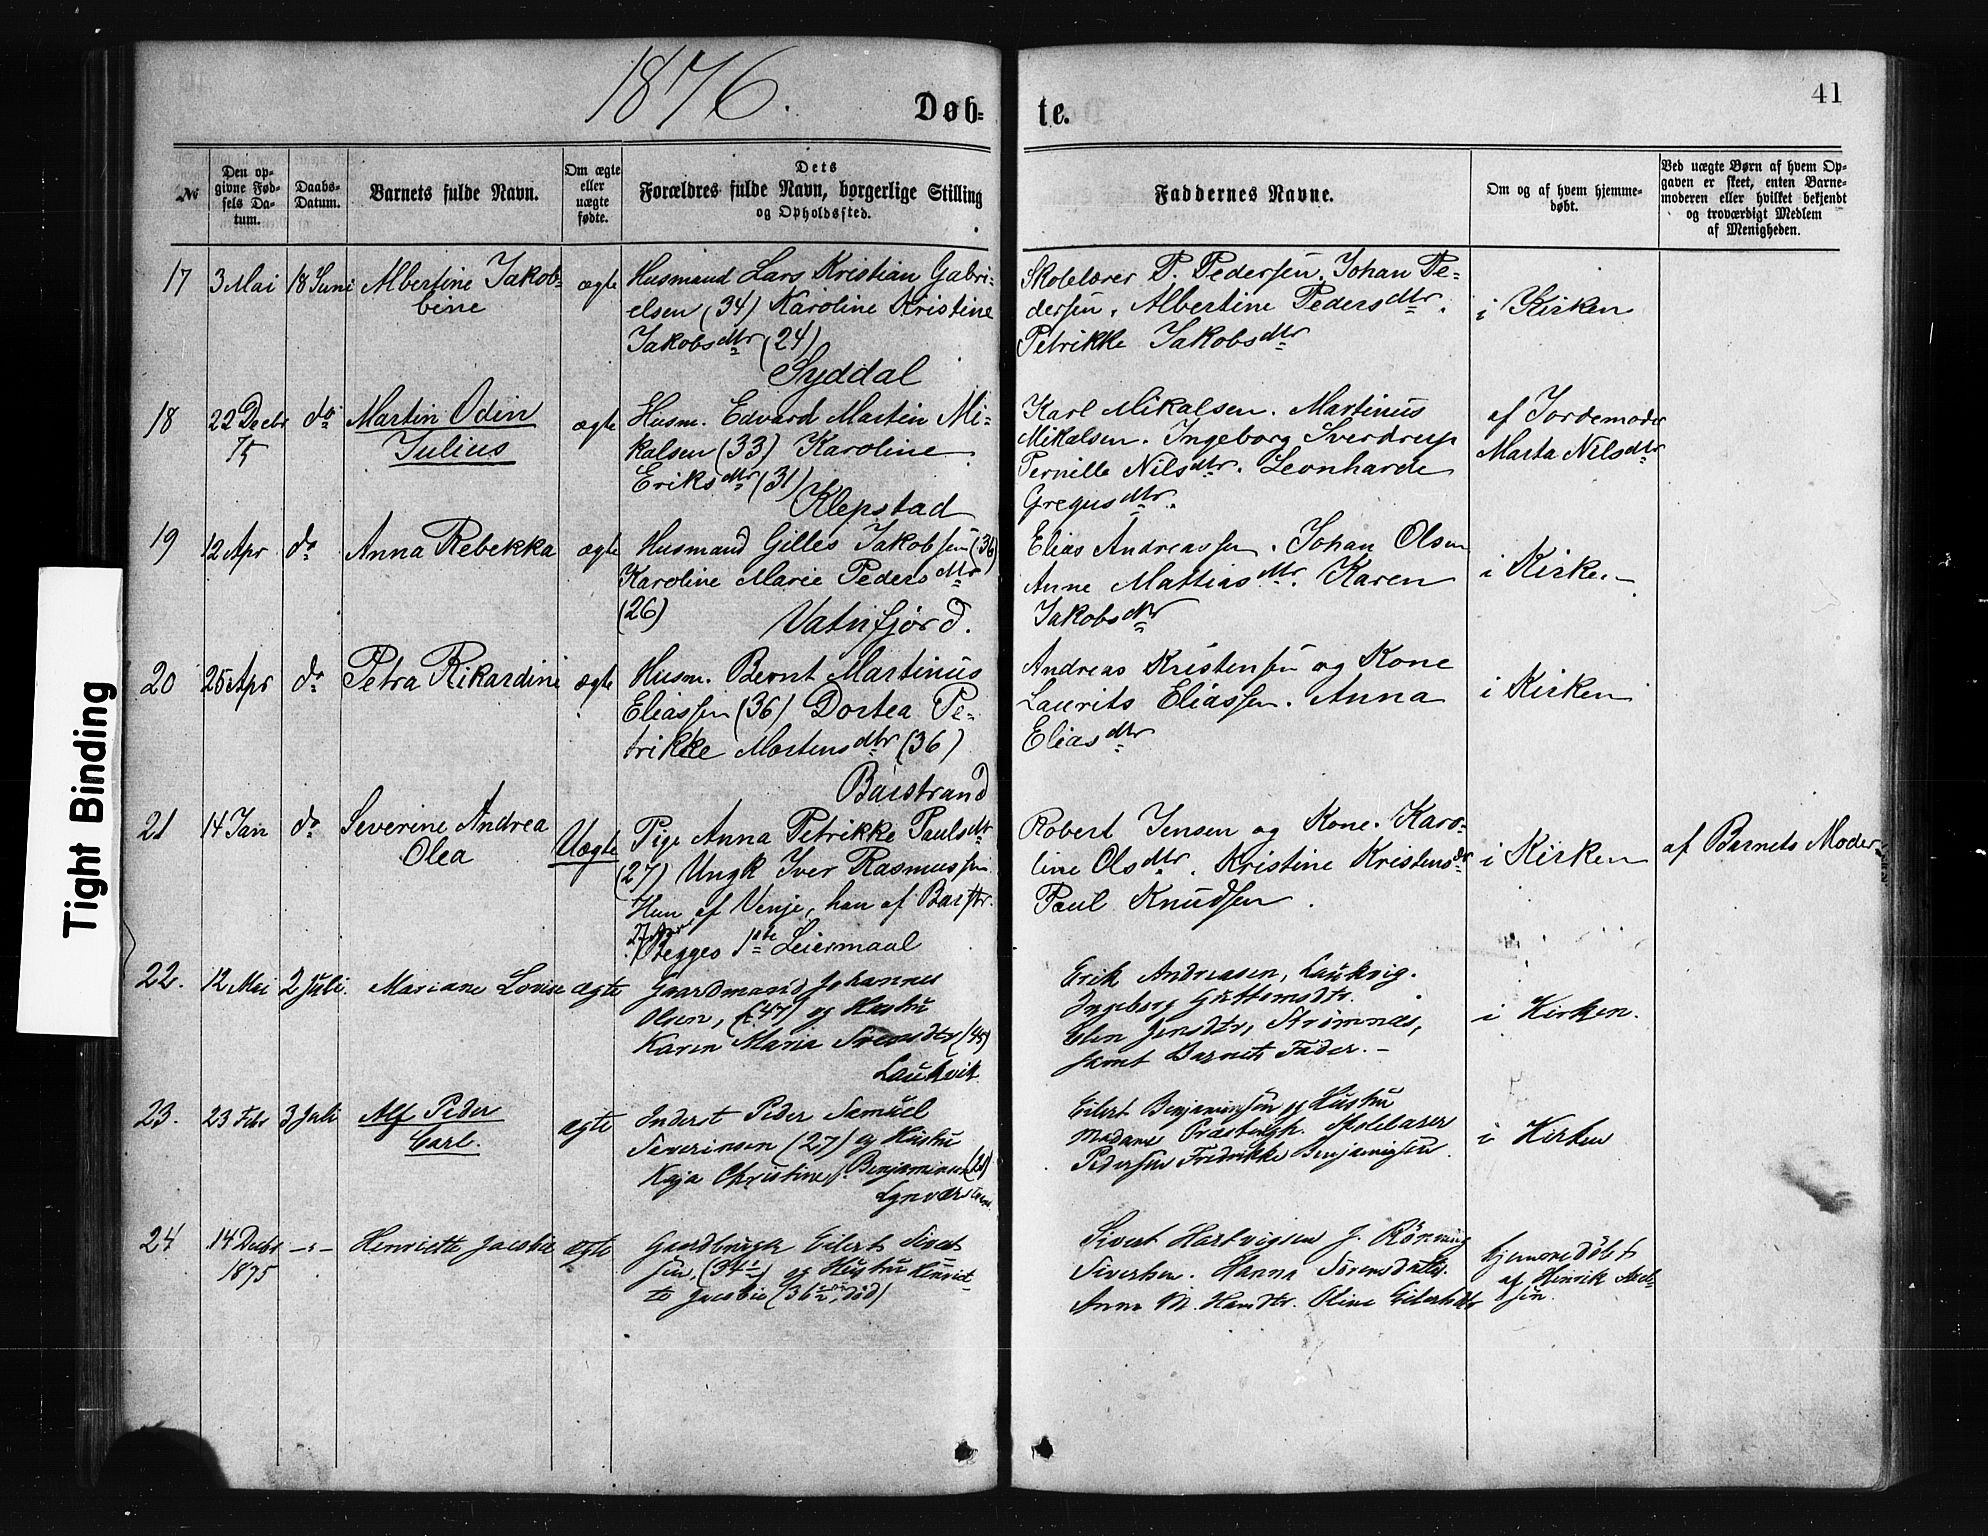 1876.
Døb-
te.
41
Tight Binding
№
Den op-
givne Fød-
sels Da-
tum.
Daabs-
Datum.
Barnets fulde Navn.
Om ægte
eller
uægte
fødte.
Dets
Forældres fulde Navn, borgerlige Stilling
og Opholdssted.
Faddernes Navne.
Om og af hvem hjemme-
døbt.
Ved uægte Børn af hvem Op-
gaven er skeet, enten Barne-
moderen eller hvilket bekjendt
og troværdigt Medlem
af Menigheden.
17
3 Mai
18 Juni
Albertine Jakob-
bine
ægte
Husmand Lars Kristian Gabri-
elsen (34) Karoline Kristine
Jakobsdtr (24)
Syddal
Skolelærer P. Pedersen. Johan Pe-
dersen. Albertine Pedersdtr.
Petrikke Jakobsdtr
i Kirken
18
22 Decbr
75
do
Martin Odin
Julius
ægte
Husm. Edvard Martin Mi-
kalsen (33) Karoline
Eriksdtr (31)
Klepstad
Karl Mikalsen. Martinus
Mikalsen. Ingeborg Sverdrup
Pernille Nilsdtr. Leonharde
Gregusdtr.
af Jordemoder
Marta Nilsdtr
19
12 Apr
do
Anna Rebekka
ægte
Husmand Gilles Jakobsen (36)
Karoline Marie Pedersdtr
(26)
Vatnfjord.
Elias Andreassen. Johan Olsen
Anne Mattiasdtr. Karen
Jakobsdtr
i Kirken
20
25 Apr
do
Petra Rikardine
ægte
Husm. Bernt Martinus
Eliassen (36) Dortea Pe-
trikke Mortensdtr (36)
Barstrand
Andreas Kristensen og Kone
Laurits Eliassen. Anna
Eliasdtr
i Kirken
21
14 Jan
do
Severine Andrea
Olea
Uægte
Pige Anna Petrikke Paulsdtr
(27) Ungk Iver Rasmussen
Hun af Venje, han af Barstr.
27 Aar
Begges 1ste Leiermaal
Robert Jensen og Kone. Karo-
line Olsdtr. Kristine Kristensdtr
Paul Knudsen.
i Kirken
af Barnets Moder
22.
12 Mai
2 Juli.
Mariane Lovise
ægte
Gaardmand Johannes
Olsen, (47) og Hustru
Karen Maria Svensdtr (45)
Laukvik
Erik Andreasen, Laukvig.
Ingeborg Guttomsdtr.
Elen Jensdtr, Strømnæs,
samt Barnets Fader. -
i Kirken.
23.
23 Febr
3 Juli
Alf Peder
Carl.
ægte
Inderst Peder Samuel
Severinsen (27) og Hustru
Kaja Christine f. Benjaminsen
Eilert Benjaminsen og Hustru
Madame Skolelærer
Pedersen Fredrikke Benjaminsen.
i Kirken
24
14 Decbr
1875
-"-
Henriette Jacobia
ægte
Gaardbruger Eilert Sivert
sen, (34½) og Hustru Henriet-
te Jacobia (36½, død)
Sivert Hartvigsen J. Rönning
Sivertsen. Hanna Sörensdatter.
Anna M. Hansdtr. Oline Eilertsdtr
hjemmedöbt
af Henrik Axel-
sen.